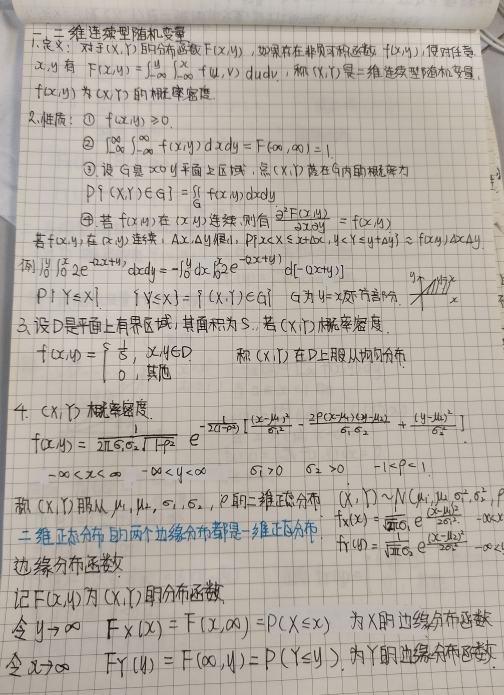 一、二维连续型随机变量
1.定义：对于(X,Y)的分布函数F(x,y)，如果存在非负可积函数f(x,y)，使对任意
x,y有 F(x,y)=∫_{-∞}^{y}∫_{-∞}^{x} f(u,v)dudv，称(X,Y)是二维连续型随机变量，
f(x,y)为(X,Y)的概率密度
2.性质：① f(x,y)≥0.
② ∫_{-∞}^{∞}∫_{-∞}^{∞} f(x,y)dxdy=F(∞,∞)=1.
③ 设G是xoy平面上区域，点(X,Y)落在G内的概率为
P{(X,Y)∈G}=∬_G f(x,y)dxdy
④ 若f(x,y)在(x,y)连续，则有 ∂²F(x,y)/∂x∂y = f(x,y)
若f(x,y)在(x,y)连续，Δx,Δy很小，P{x<X≤x+Δx,y<Y≤y+Δy}≈f(x,y)ΔxΔy.
例 ∫_0^y∫_0^x 2e^{-(2x+y)}dxdy=-∫_0^y dx∫_0^x 2e^{-(2x+y)} d[-(2x+y)]
P{Y≤X} {Y≤X}={(X,Y)∈G} G为y=x 下方部分. y x
3.设D是平面上有界区域，其面积为S，若(X,Y)概率密度
f(x,y)={ 1/S, x,y∈D
0, 其他
称(X,Y)在D上服从均匀分布
4. (X,Y)概率密度
f(x,y)= 1/(2πσ₁σ₂√(1-ρ²)) e^{-1/(2(1-ρ²))[(x-μ₁)²/σ₁² - 2ρ(x-μ₁)(y-μ₂)/σ₁σ₂ + (y-μ₂)²/σ₂²]}
-∞<x<∞ -∞<y<∞ σ₁>0 σ₂>0 -1<ρ<1
称(X,Y)服从μ₁,μ₂,σ₁,σ₂,ρ的二维正态分布 (X,Y)~N(μ₁,μ₂,σ₁²,σ₂²,ρ
二维正态分布的两个边缘分布都是一维正态分布
f_X(x)= 1/(√2π σ₁) e^{(x-μ₁)²/2σ₁²} -∞<x
f_Y(y)= 1/(√2π σ₂) e^{(x-μ₂)²/2σ₂²} -∞<
边缘分布函数
记F(x,y)为(X,Y)的分布函数
令y→∞ F_X(x)=F(x,∞)=P(X≤x) 为X的边缘分布函数
令x→∞ F_Y(y)=F(∞,y)=P(Y≤y). 为Y的边缘分布函数